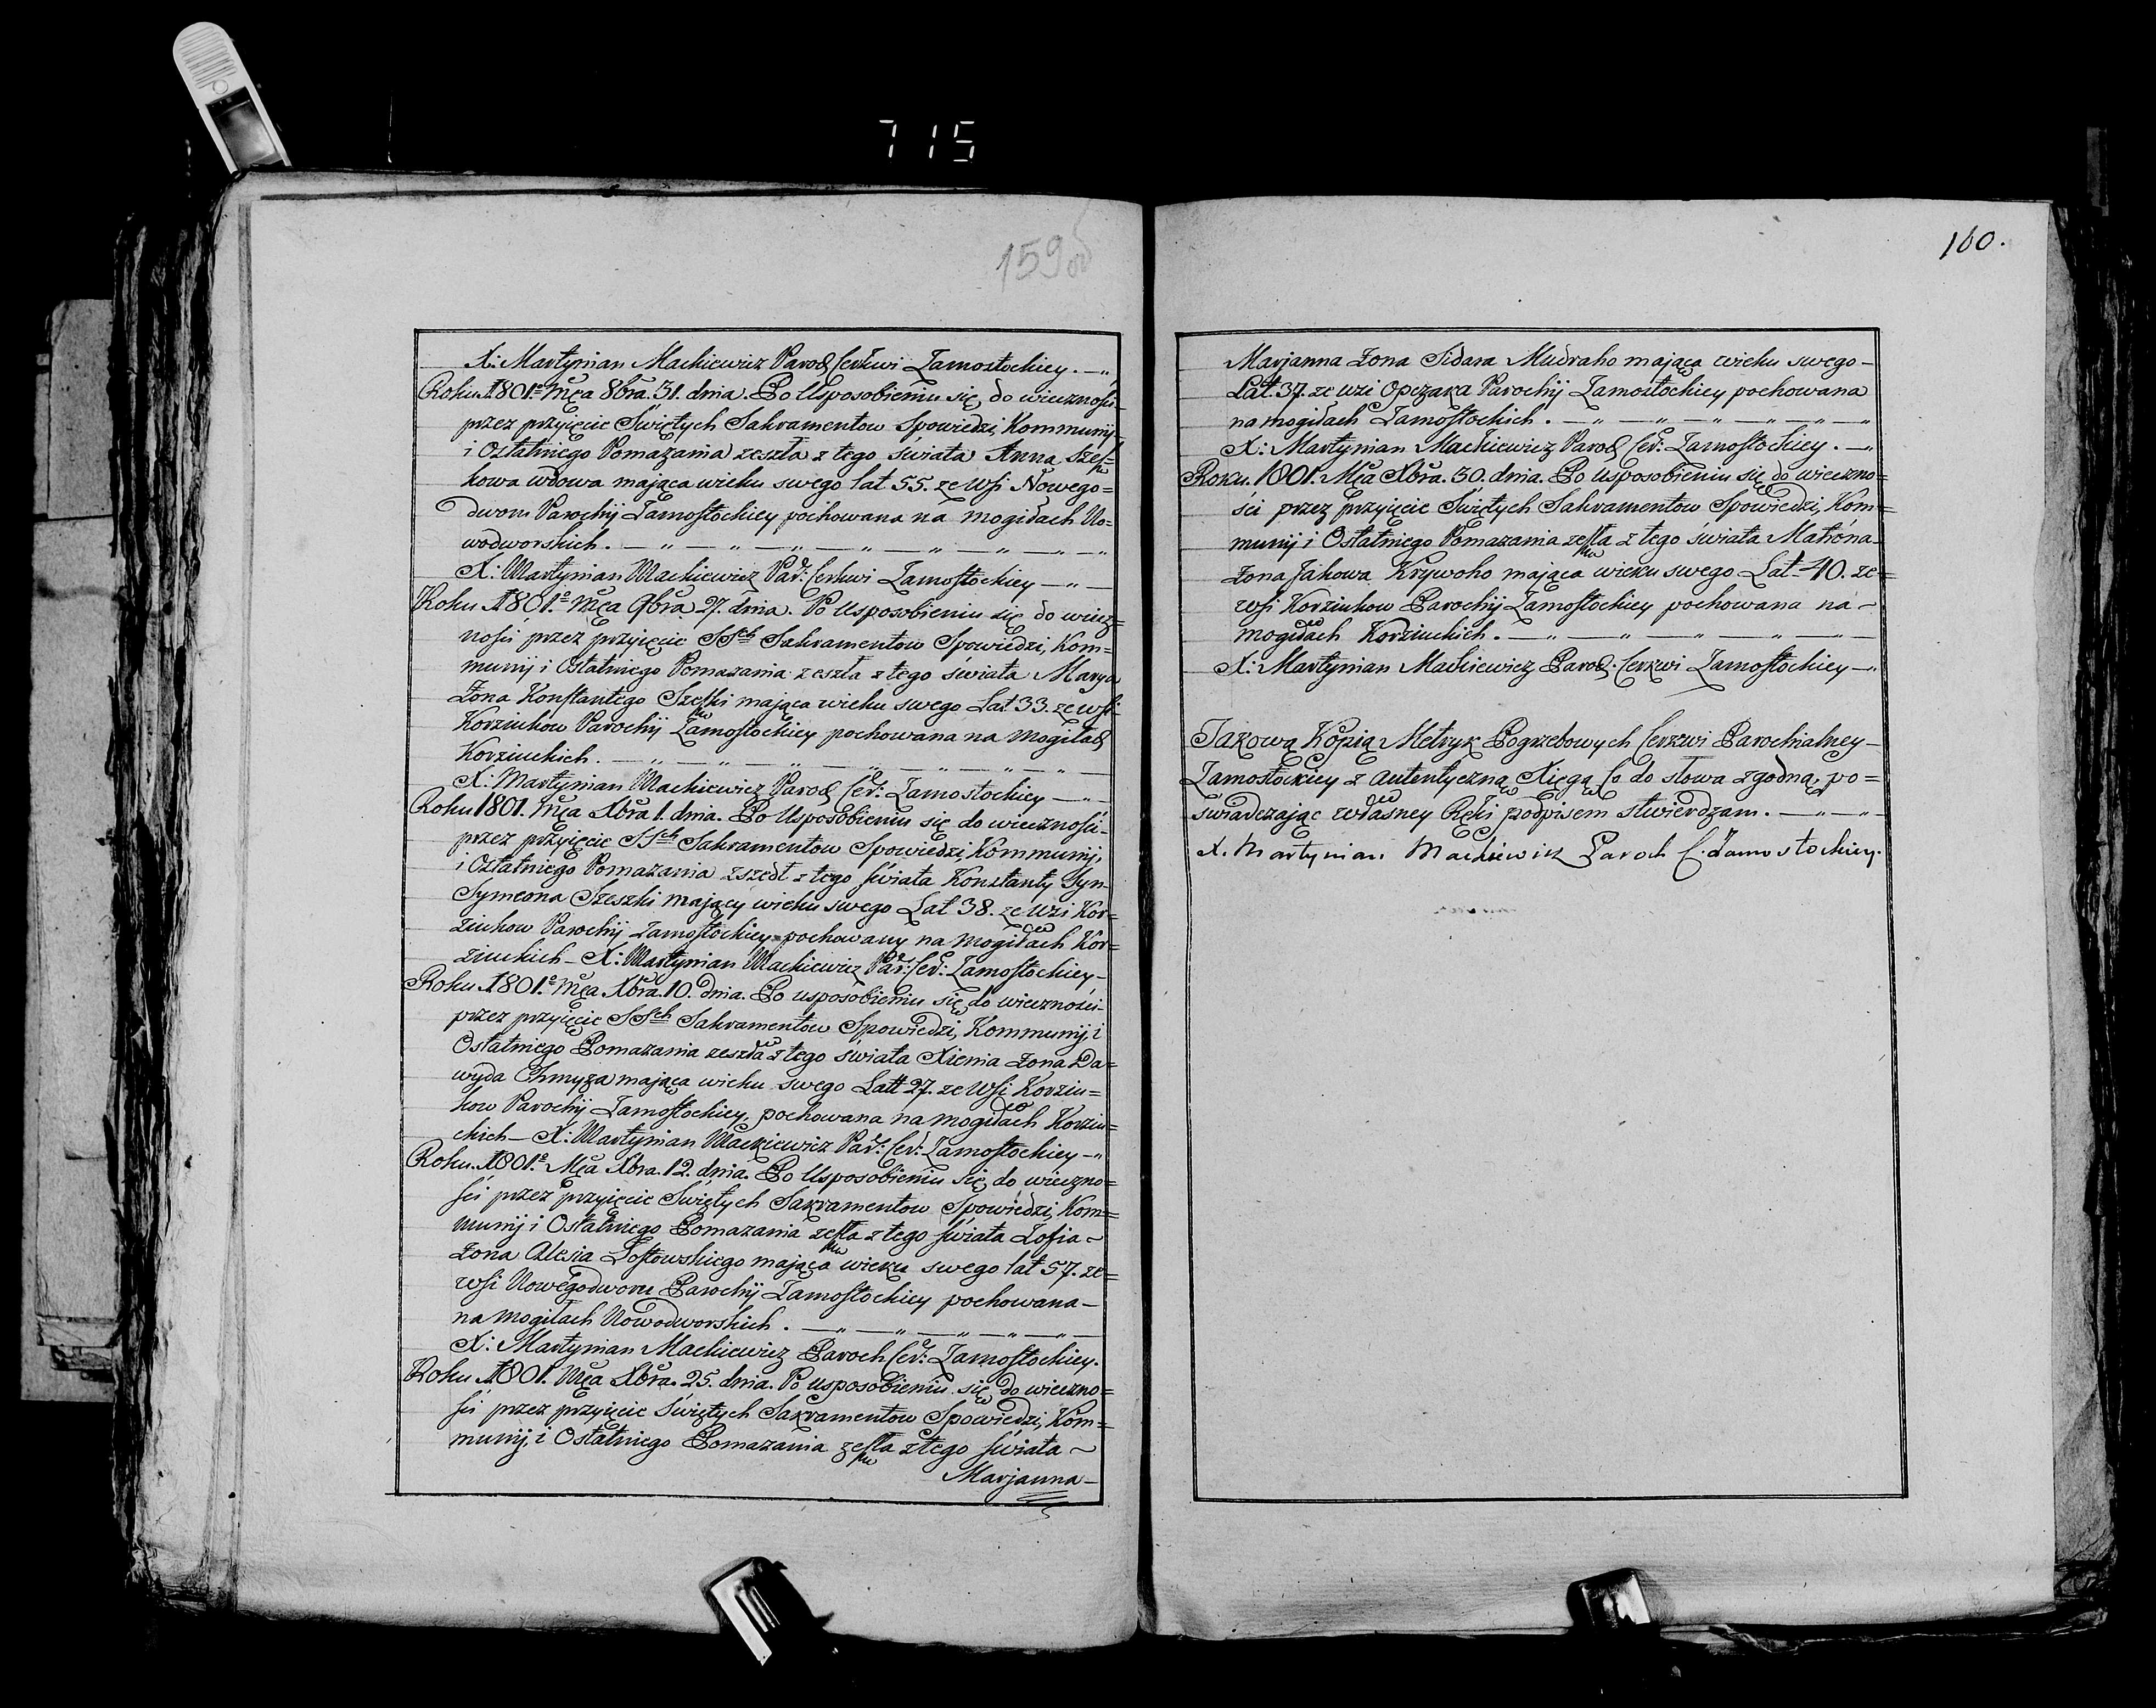 715
159 об
X: Martynian Mackiewicz Paroch Cerkwi Zamostockiey. — „
Roku 1801º Mca 8bra. 31. dnia. Po Usposobieniu się do wieczności
przez przyięcie Swiętych Sakramentow Spowiedzi, Kommunij
i Ostatniego Pomazania zeszła z tego świata Anna Szesz=
kowa wdowa maiąca wieku swego lat 55. ze wsi Nowego=
dworu Parochij Zamostockiey pochowana na mogiłach No=
wodworskich. — „ — „ — „ — „ — „ — „ — „
X: Martynian Mackiewicz Par: Cerkwi Zamostockiey — „ —
Roku 1801.º Mca 9bra 27. dnia. Po Usposobieniu się do wiecz=
ności przez przyięcie SSch Sakramentow Spowiedzi, Kom=
munij i Ostatniego Pomazania zeszła z tego świata Marya
Żona Konstantego Szeszki maiąca wieku swego Lat 33. ze wsi
Korziukow Parochij Zamostockiey pochowana na Mogiłach
Korziuckich. — „ — „ — „ — „ — „ — „ —
X: Martynian Mackiewicz Paroch Cer: Zamostockiey — „ —
Roku 1801. Mca Xbra 1. dnia. Po Usposobieniu się do wieczności
przez przyięcie SSch Sakramentow Spowiedzi, Kommunij,
i Ostatniego Pomazania zszedł z tego świata Konstanty Syn
Symeona Szeszki maiący wieku swego Lat 38. ze wzi Kor=
ziukow Parochij Zamostockiey pochowany na Mogiłach Kor=
ziuckich — X: Martynian Mackiewicz Par: Cer: Zamostockiey —
Roku 1801.º Mca Xbra. 10. dnia. Po usposobieniu się do wieczności
przez przyięcie SSch Sakramentow Spowiedzi, Kommunij i
Ostatniego Pomazania zeszła z tego świata Xienia żona Da=
wyda Chmyza maiąca wieku swego Latt 27. ze wsi Korziu=
kow Parochij Zamostockiey, pochowana na mogiłach Korziu
ckich — X: Martynian Mackiewicz Par: Cer: Zamostockiey — „
Roku. 1801.º Mca Xbra. 12. dnia. Po Usposobieniu się do wieczno=
ści przez przyięcie Swiętych Sakramentow Spowiedzi, Kom=
munij i Ostatniego Pomazania zeszła z tego świata Zofia —
żona Alesia Łostowskiego maiąca wieku swego lat 57. ze=
wsi Nowegodworu Parochij Zamostockiey pochowana —
na mogiłach Nowodworskich. — „ — „ — „ — „ — „ —
X: Martynian Mackiewicz Paroch Cer: Zamostockiey.
Roku 1801. Mca Xbra. 25. dnia. Po usposobieniu się do wieczno=
ści przez przyięcie Swiętych Sakramentow Spowiedzi, Kom=
munij, i Ostatniego Pomazania zeszła z tego świata —
Marjanna —
160.
Marjanna żona Sidara Mudraho maiąca wieku swego —
Lat. 37. ze wzi Opczara Parochij Zamostockiey pochowana
na mogiłach Zamostockich. — „ — „ — „ — „ — „
X: Martynian Mackiewicz Paroch Cer: Zamostockiey. — „
Roku. 1801. Mca Xbra. 30. dnia. Po usposobieniu się do wieczno=
ści przez przyięcie Swiętych Sakramentow Spowiedzi, Kom=
munij i Ostatniego Pomazania zeszła z tego świata Matrona
żona Jakowa Krywoho maiąca wieku swego Lat 40. ze=
wsi Korziukow Parochij Zamostockiey pochowana na —
mogiłach Korziuckich. — „ — „ — „ — „ —
X: Martynian Mackiewicz Paroch. Cerkwi Zamostockiey — „
Takową Kopią Metryk Pogrzebowych Cerkwi Parochialney —
Zamostockiey z autentyczną Xięgą Co do słowa zgodną, po=
swiadczając własney Ręki podpisem stwierdzam. — „ — „ —
X. Martynian Mackiewicz Paroch C. Zamostockiey.